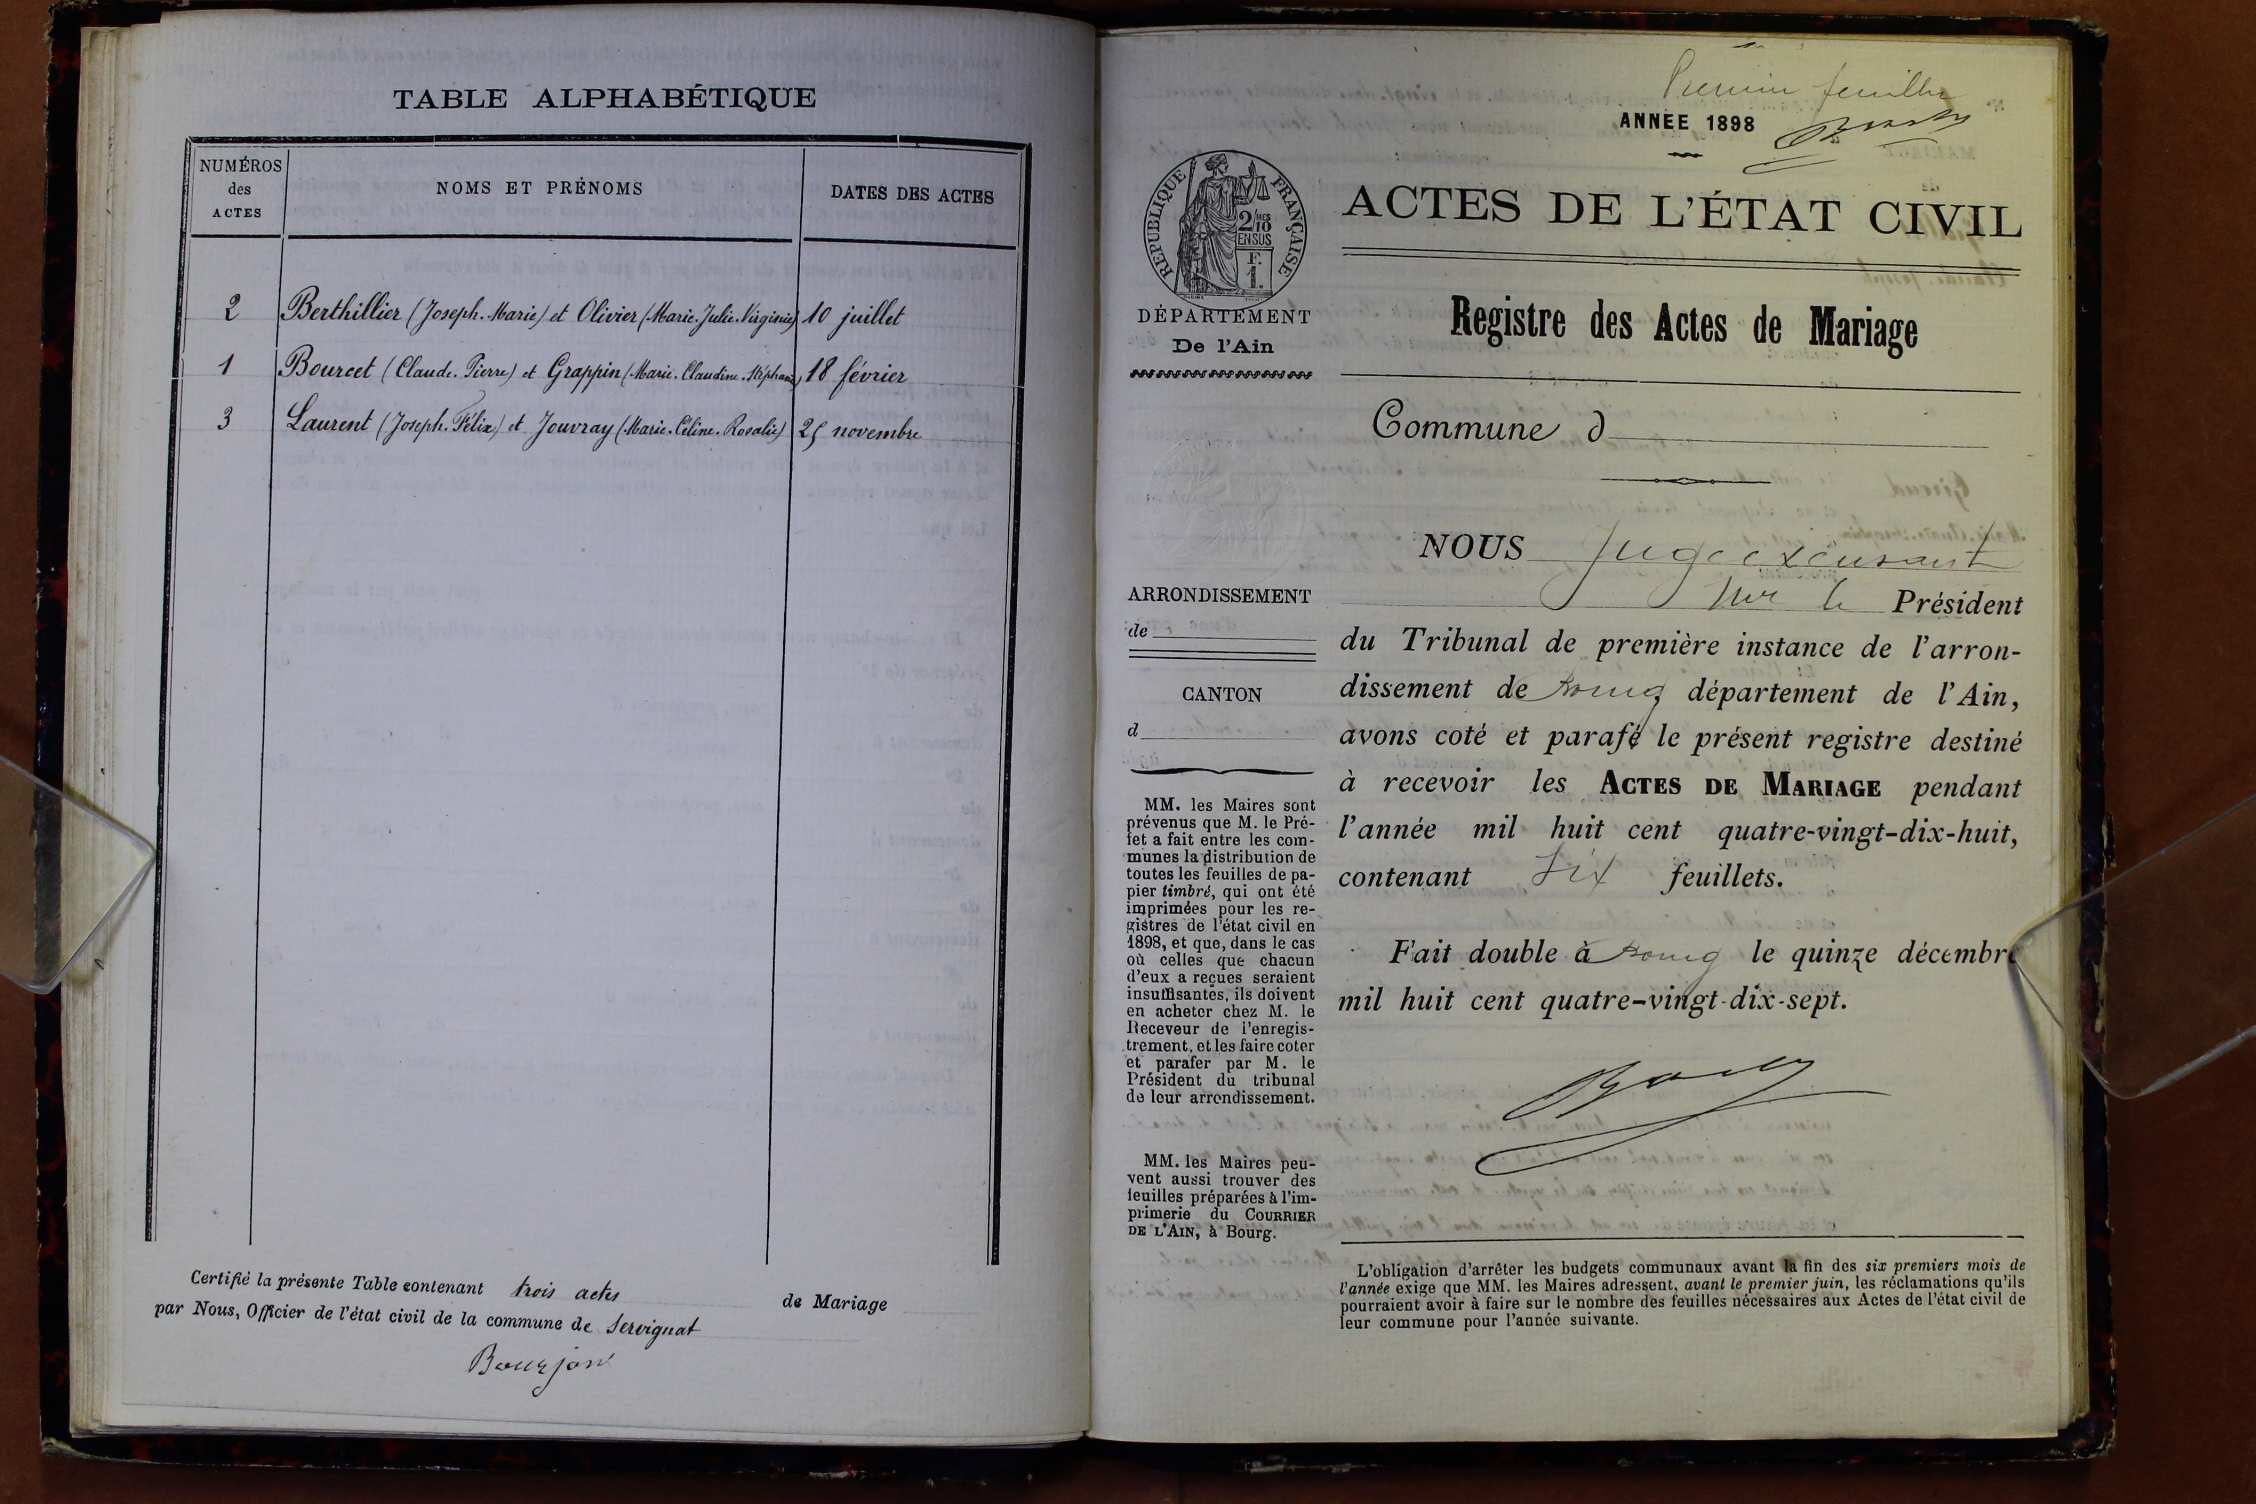 TABLE ALPHABÉTIQUE
NUMÉROS
des
ACTES
NOMS ET PRÉNOMS
DATES DES ACTES
2 Berthillier (Joseph. Marie) et Olivier (Marie. Julie. Virginie) 10 juillet
1 Bourcet (Claude. Pierre) et Grappin (Marie. Claudine. Stéphanie) 18 février
3 Laurent (Joseph. Félix) et Jouvray (Marie. Céline. Rosalie) 25 novembre
Certifié la présente Table contenant trois actes de Mariage
par Nous, Officier de l'état civil de la commune de Servignat
Bourjon
feuillet
ANNÉE 1898
RÉPUBLIQUE FRANÇAISE
2/10
EN SUS
F.
1.
DÉPARTEMENT
De l'Ain
ARRONDISSEMENT
de
CANTON
d
MM. les Maires sont
prévenus que M. le Pré-
fet a fait entre les com-
munes la distribution de
toutes les feuilles de pa-
pier timbré, qui ont été
imprimées pour les re-
gistres de l'état civil en
1898, et que, dans le cas
où celles que chacun
d'eux a reçues seraient
insuffisantes, ils doivent
en acheter chez M. le
Receveur de l'enregis-
trement, et les faire coter
et parafer par M. le
Président du tribunal
de leur arrondissement.
MM. les Maires peu-
vent aussi trouver des
feuilles préparées à l'im-
primerie du COURRIER
DE L'AIN, à Bourg.
ACTES DE L'ÉTAT CIVIL
Registre des Actes de Mariage
Commune d
NOUS Juge
Président
du Tribunal de première instance de l'arron-
dissement de Bourg département de l'Ain,
avons coté et parafé le présent registre destiné
à recevoir les ACTES DE MARIAGE pendant
l'année mil huit cent quatre-vingt-dix-huit,
contenant Six feuillets.
Fait double à Bourg le quinze décembre
mil huit cent quatre-vingt-dix-sept.
L'obligation d'arrêter les budgets communaux avant la fin des six premiers mois de
l'année exige que MM. les Maires adressent, avant le premier juin, les réclamations qu'ils
pourraient avoir à faire sur le nombre des feuilles nécessaires aux Actes de l'état civil de
leur commune pour l'année suivante.